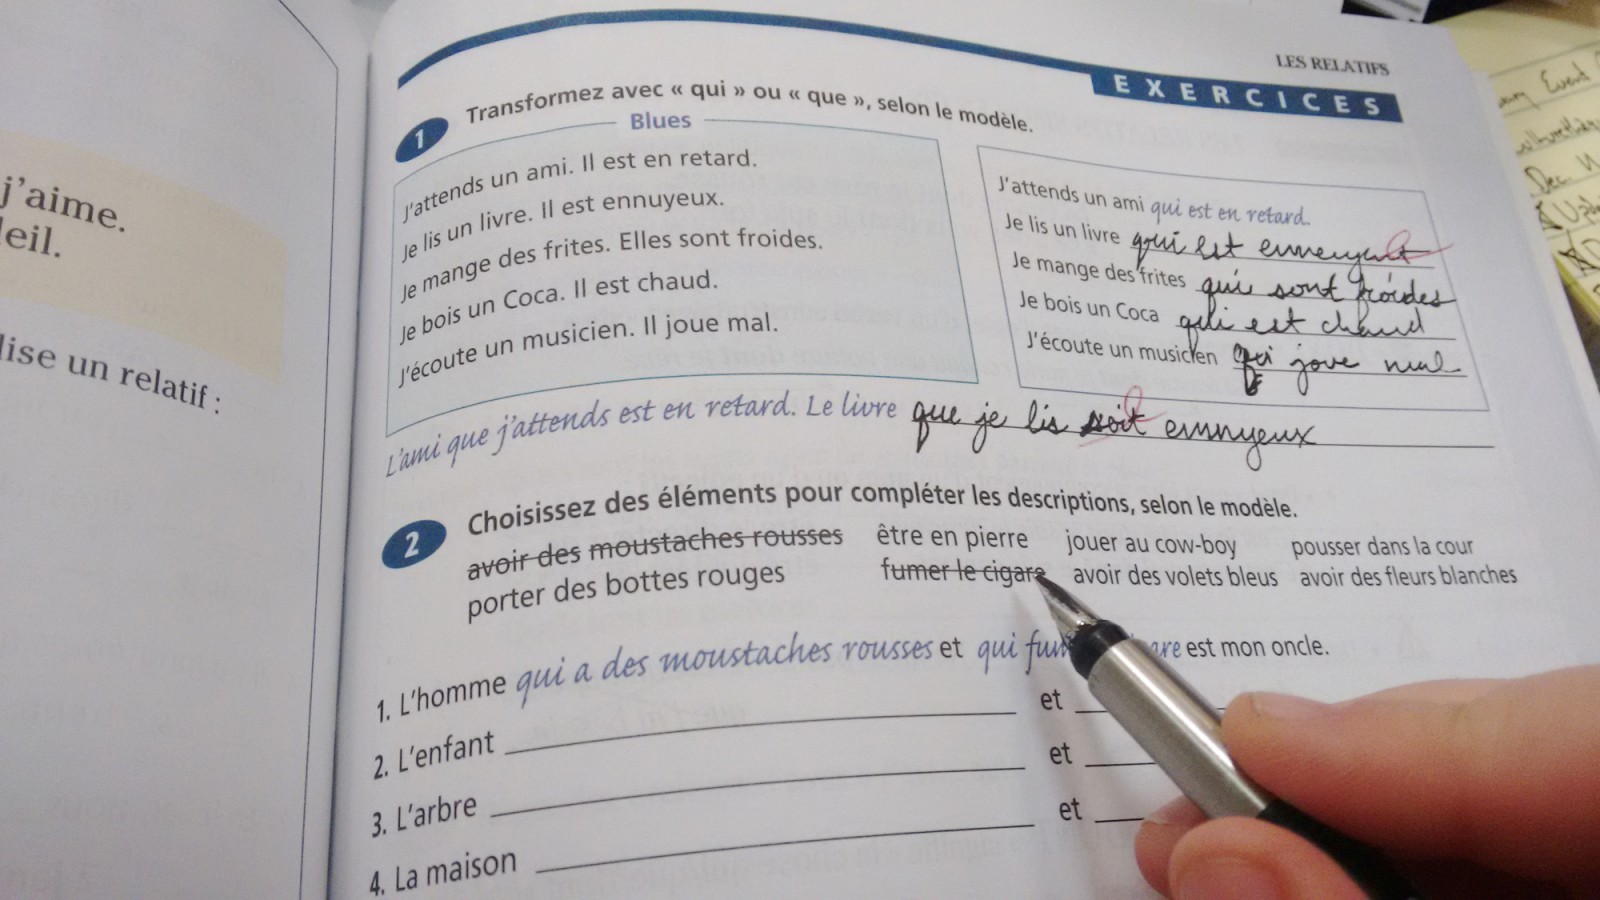 j'aime.
leil.
lise un relatif :
LES RELATIFS
EXERCICES
1 Transformez avec « qui » ou « que », selon le modèle.
Blues
J'attends un ami. Il est en retard.
Je lis un livre. Il est ennuyeux.
Je mange des frites. Elles sont froides.
Je bois un Coca. Il est chaud.
J'écoute un musicien. Il joue mal.
J'attends un ami qui est en retard.
Je lis un livre qui est
Je mange des frites qui sont froides
Je bois un Coca qui est chaud
J'écoute un musicien qui joue mal
L'ami que j'attends est en retard. Le livre que je lis soit ennuyeux
2 Choisissez des éléments pour compléter les descriptions, selon le modèle.
avoir des moustaches rousses être en pierre jouer au cow-boy pousser dans la cour
porter des bottes rouges fumer le cigare avoir des volets bleus avoir des fleurs blanches
1. L'homme qui a des moustaches rousses et qui est mon oncle.
2. L'enfant et
3. L'arbre et
4. La maison et
Event
Dec